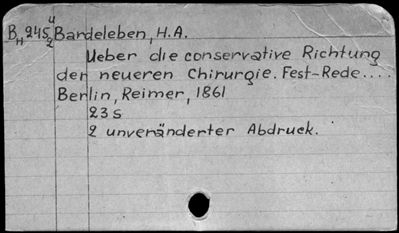 BH 245 u2 Bardeleben, H.A.
Ueber die conservative Richtung
der neueren Chirurgie. Fest-Rede....
Berlin, Reimer, 1861
23 s
2 unveränderter Abdruck.